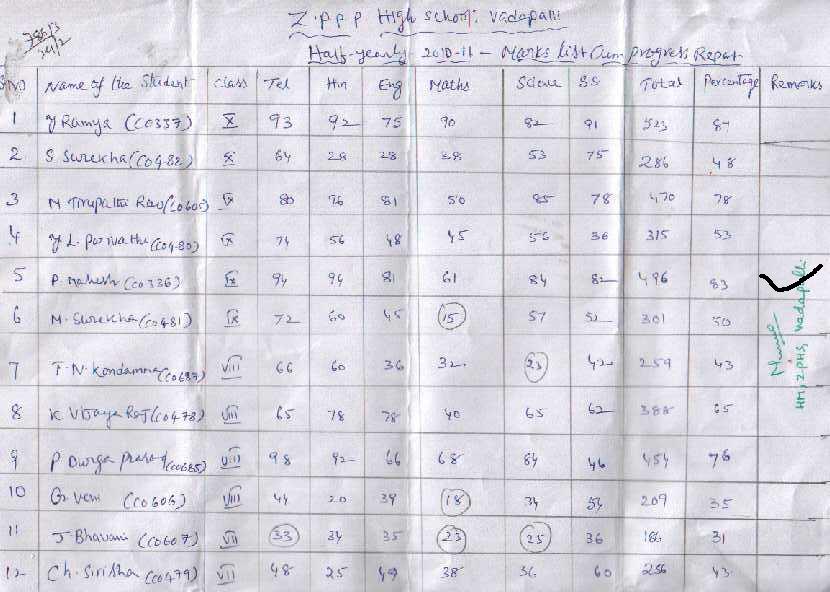 Z.P.P.P High school: Vadapalli
Half-yearly 2010-11 - Marks List Cum progress Report
SNO Name of the Student Class Tel Hin Eng Maths Science S.S Total Percentage Remarks
1 Y Ramya (C0337) X 93 92 75 90 82 91 523 87
2 S Surekha (C0482) X 64 28 28 38 53 75 286 48
3 N Tirupathi Rao (C0605) IX 80 76 81 50 85 78 470 78
4 Y L. Parvathi (C0480) IX 74 56 48 45 56 36 315 53
5 P. Mahesh (C0336) IX 94 94 81 61 84 82 496 83
6 M. Surekha (C0481) IX 72 60 45 15 57 52 301 50
7 T. N. Kondamma (C0687) VIII 66 60 36 32 23 42 259 43
8 K Vijaya Raj (C0478) VIII 65 78 78 40 65 62 388 65
9 P Durga prasad (C0685) VIII 98 92 66 68 84 46 454 76
10 G. veni (C0606) VIII 44 20 39 18 34 54 209 35
11 J. Bhavani (C0607) VII 33 34 35 23 25 36 186 31
12 Ch. Sirisha (C0479) VII 48 25 49 38 36 60 256 43
HM, Z.PHS, Vadapalli